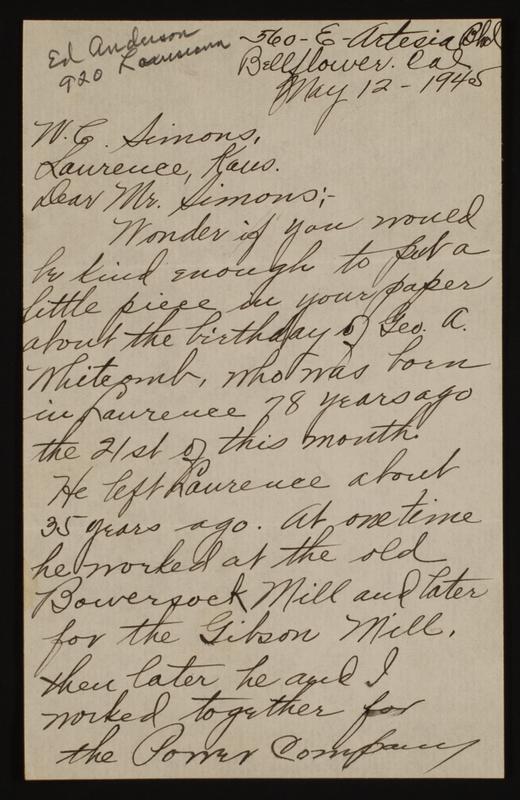 Ed Anderson
920 Louisiana
560-E-Artesia Blvd
Bellflower. Cal
May 12-1945
W.C. Simons,
Laurence, Kans.
Dear Mr. Simons;-
Wonder if you would
be kind enough to put a
little piece in your paper
about the birthday of Geo. A.
Whitcomb, who was born
in Laurence 78 years ago
the 21st of this month.
He left Laurence about
35 years ago. At one time
he worked at the old
Bowersock Mill and later
for the Gibson Mill.
then later he and I
worked together for
the Power Company